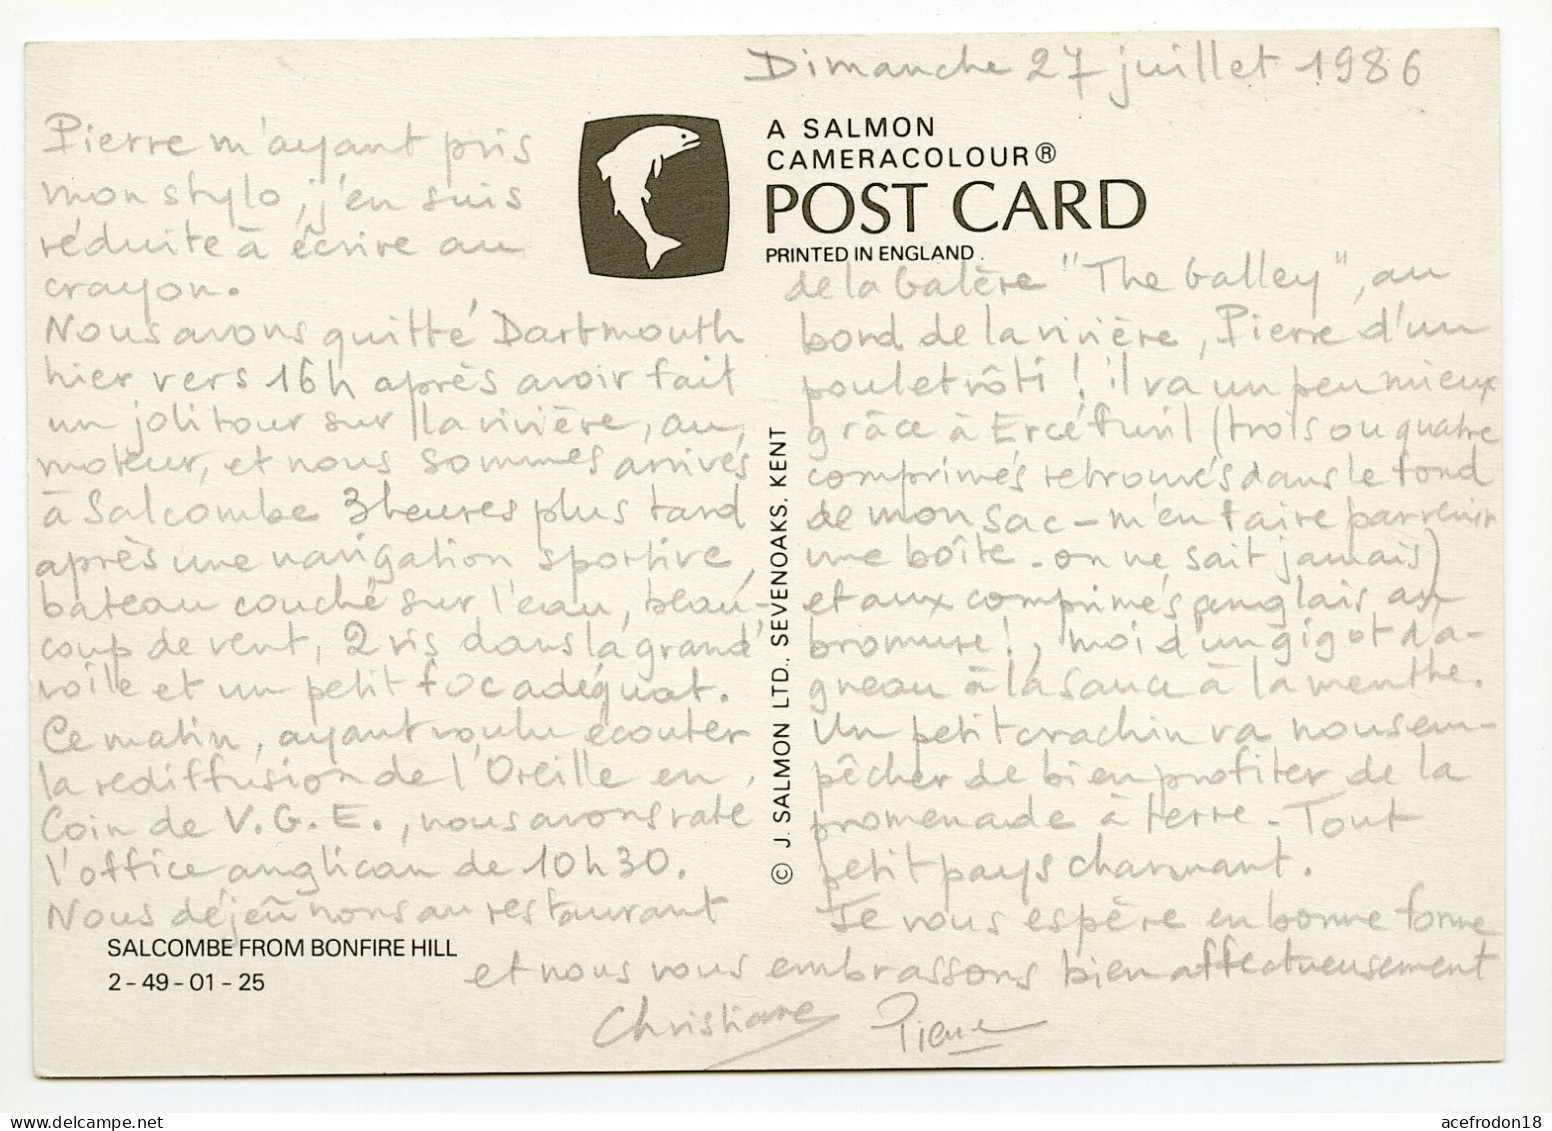 Dimanche 27 juillet 1986
Pierre m'ayant pris
mon stylo, j'en suis
réduite à écrire au
crayon.
Nous avons quitté Dartmouth
hier vers 16h après avoir fait
un joli tour sur la rivière, au
moteur, et nous sommes arrivés
à Salcombe 3 heures plus tard
après une navigation sportive,
bateau couché sur l'eau, beau-
coup de vent, 2 ris dans la grand'
voile et un petit foc adéquat.
Ce matin, ayant voulu écouter
la rediffusion de l'Oreille en
Coin de V.G.E., nous avons raté
l'office anglican de 10h30.
Nous déjeûnons au restaurant
A SALMON
CAMERACOLOUR®
POST CARD
PRINTED IN ENGLAND.
© J. SALMON LTD., SEVENOAKS, KENT
de la Galère "The Galley", au
bord de la rivière, Pierre d'un
poulet rôti ! il va un peu mieux
grâce à Ercéfuryl (trois ou quatre
comprimés retrouvés dans le fond
de mon sac - m'en faire parvenir
une boîte - on ne sait jamais)
et aux comprimés anglais au
bromure !, moi d'un gigot d'a-
gneau à la sauce à la menthe.
Un petit crachin va nous em-
pêcher de bien profiter de la
promenade à terre - Tout
petit pays charmant.
Je vous espère en bonne forme
et nous vous embrassons bien affectueusement
Christiane Pierre
SALCOMBE FROM BONFIRE HILL
2-49-01-25
acefrodon18